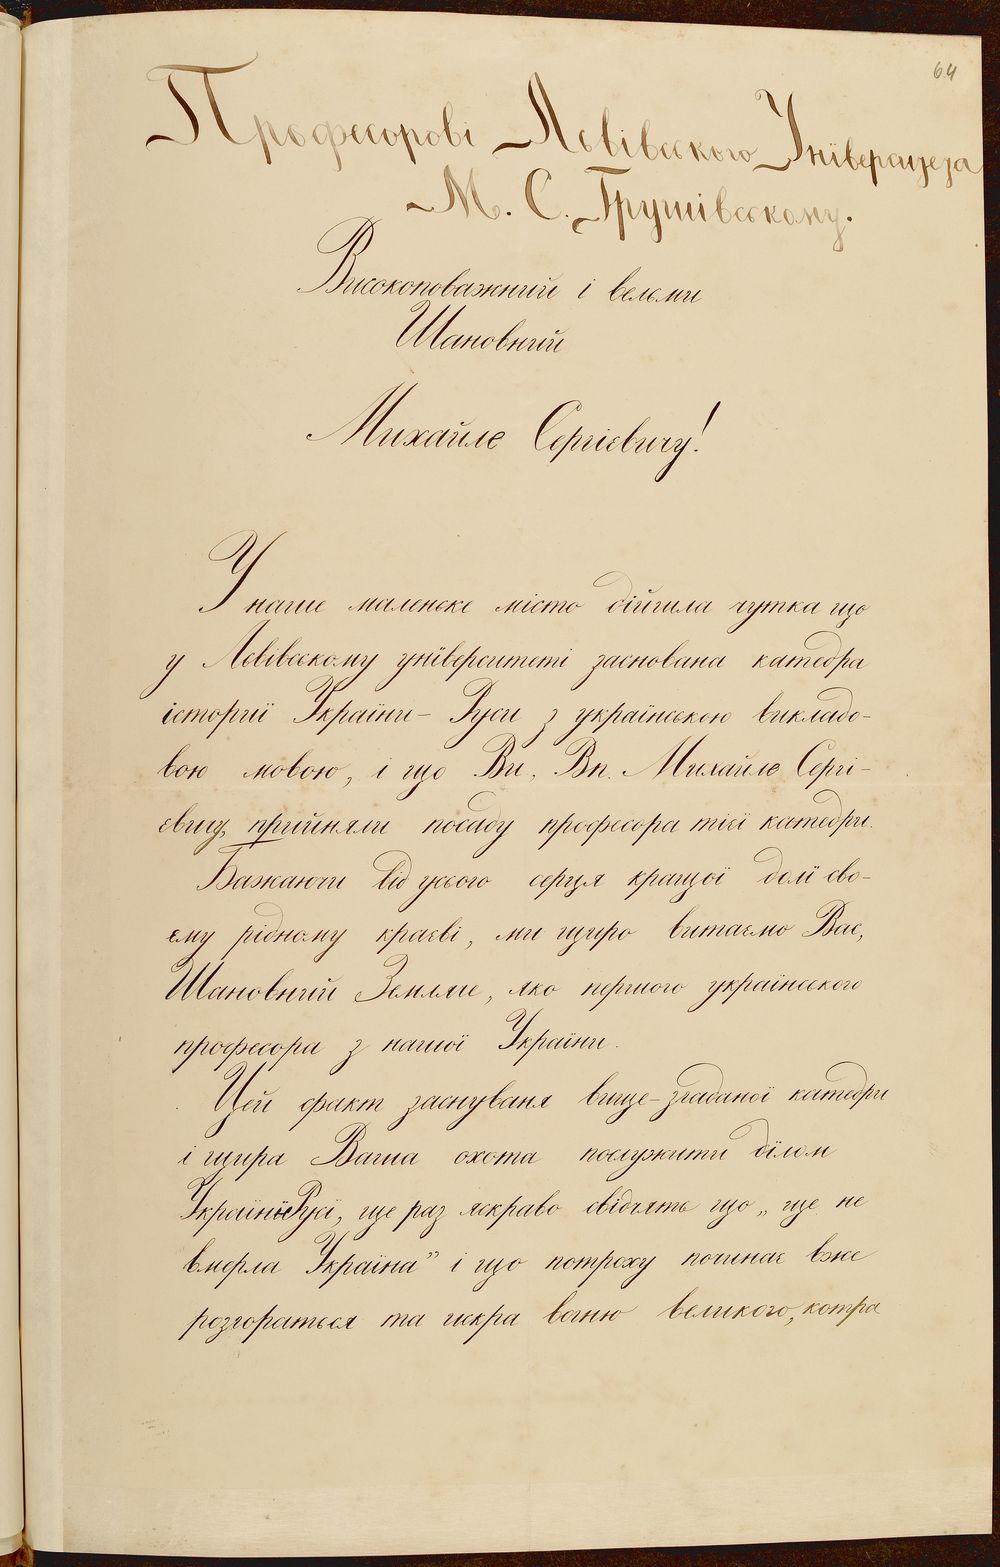 64
Професорові Львівського Унїверсітета
М. С. Грушівському.
Високоповажний і вельми
Шановний
Михайле Сергієвичу!
У наше маленьке місто дійшла чутка що
у Львівському унїверситеті заснована катедра
історії України-Руси з українською викладо-
вою мовою, і що Ви, Вп. Михайле Сергі-
євичу, прийняли посаду професора тієї катедри.
Бажаючи від усього серця кращої долї сво-
єму рідному краєві, ми щиро витаємо Вас,
Шановний Земляче, яко першого українського
професора з нашої України.
Цей факт заснуваня вище-згаданої катедри
і щира Ваша охота послужити дїлом
Українї Русї, ще раз яскраво свідчять що „ще не
вмерла Україна" і що потроху починає вже
розгораться та искра вогню великого, котра